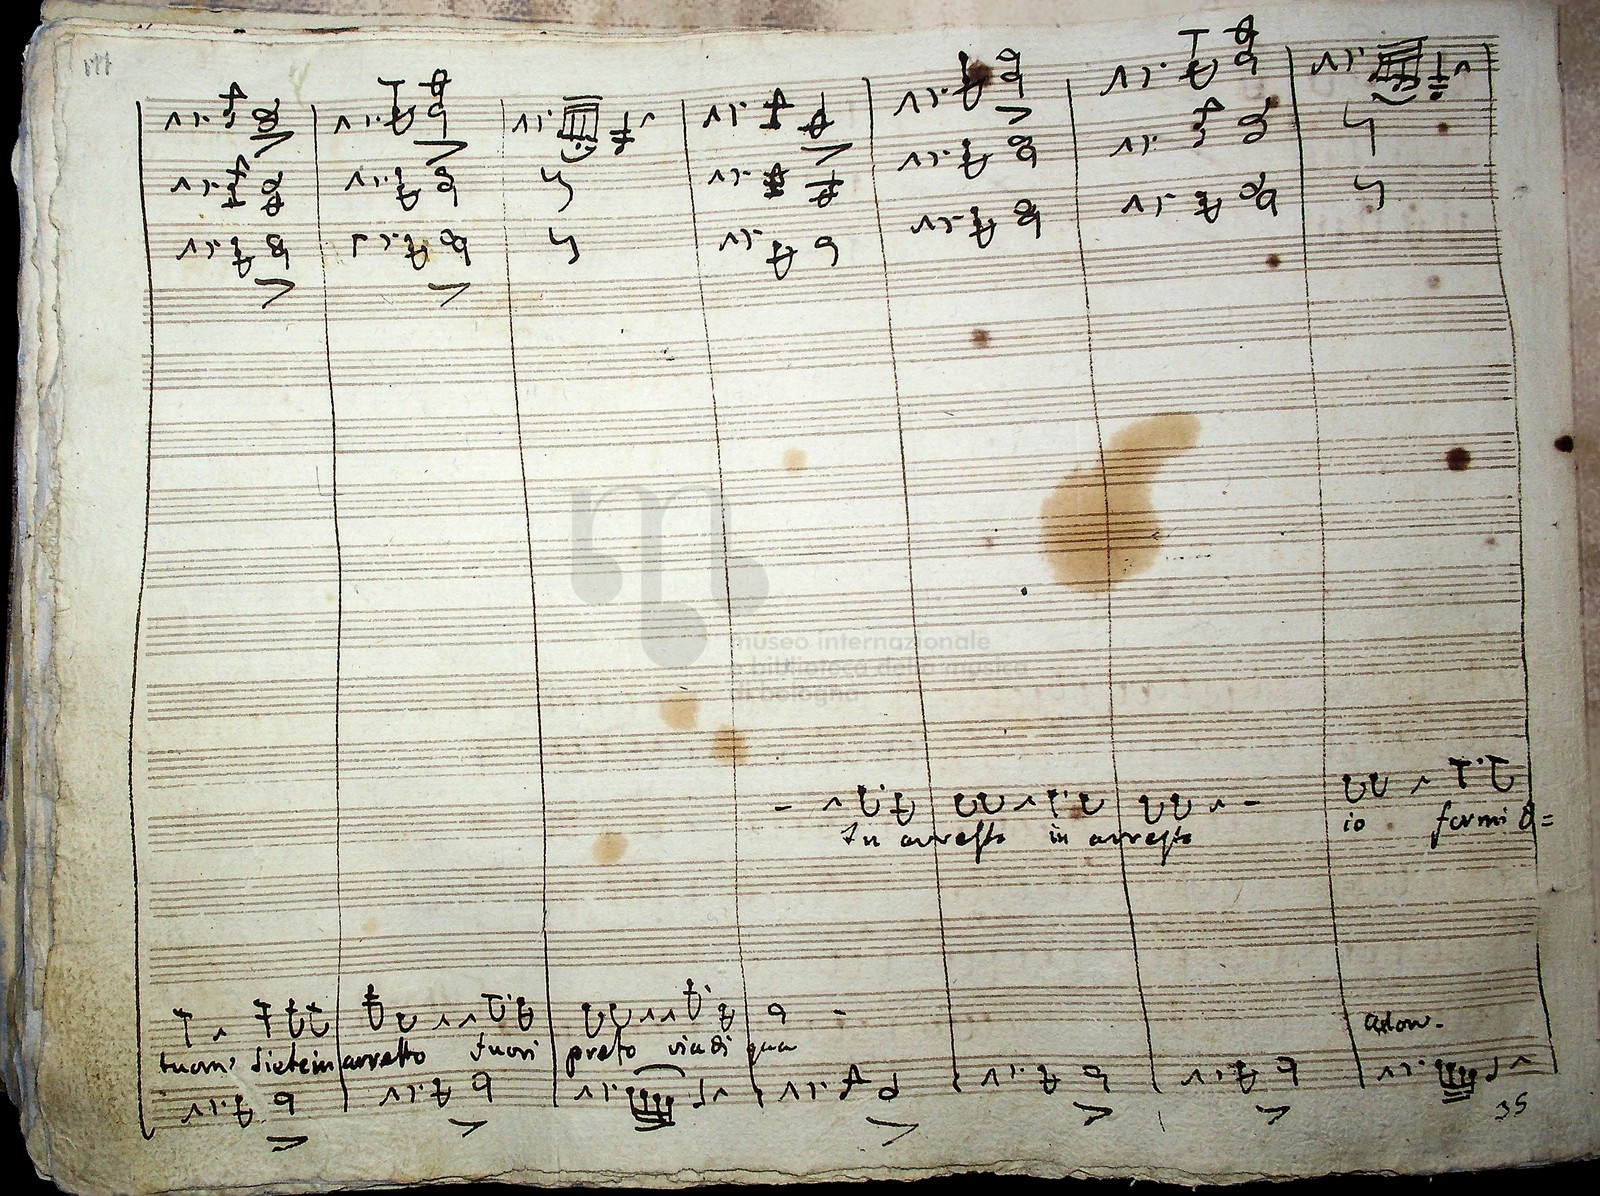 museo internazionale
e biblioteca della musica
di bologna
In arresto in arresto
io fermi O=
sietein arresto fuori presto via di qua
35